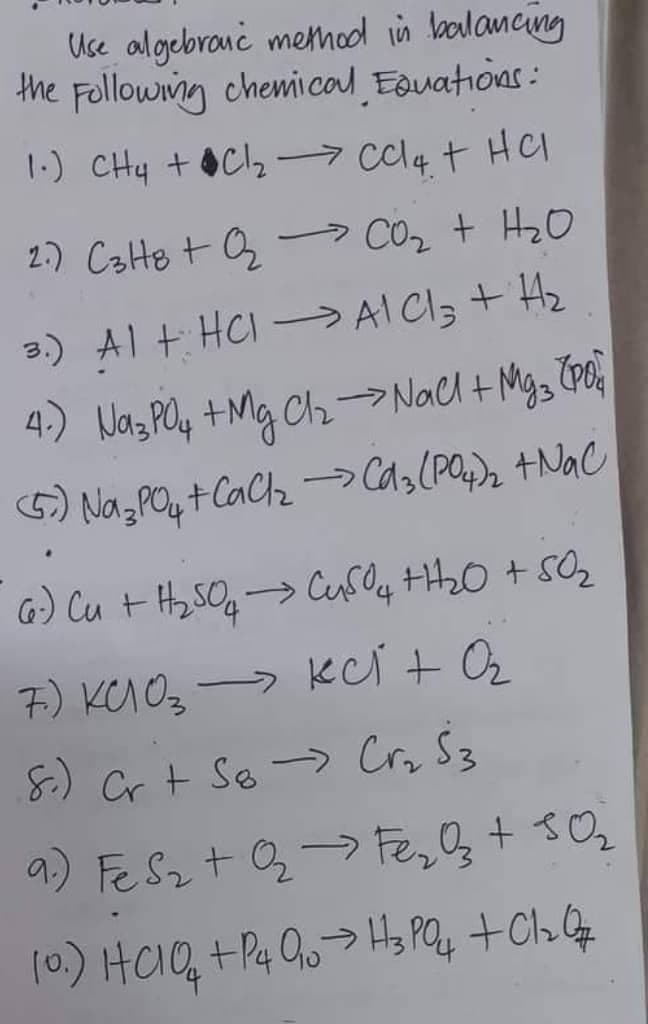 Use algebraic method in balancing
the Following chemical Equations:
1.) CH4 + Cl2 → CCl4 + HCl
2.) C3H8 + O2 → CO2 + H2O
3.) Al + HCl → AlCl3 + H2
4.) Na3PO4 + MgCl2 → NaCl + Mg3(PO4
5.) Na3PO4 + CaCl2 → Ca3(PO4)2 + NaC
6.) Cu + H2SO4 → CuSO4 + H2O + SO2
7.) KClO3 → KCl + O2
8.) Cr + S8 → Cr2S3
9.) FeS2 + O2 → Fe2O3 + SO2
10.) HClO4 + P4O10 → H3PO4 + Cl2O7